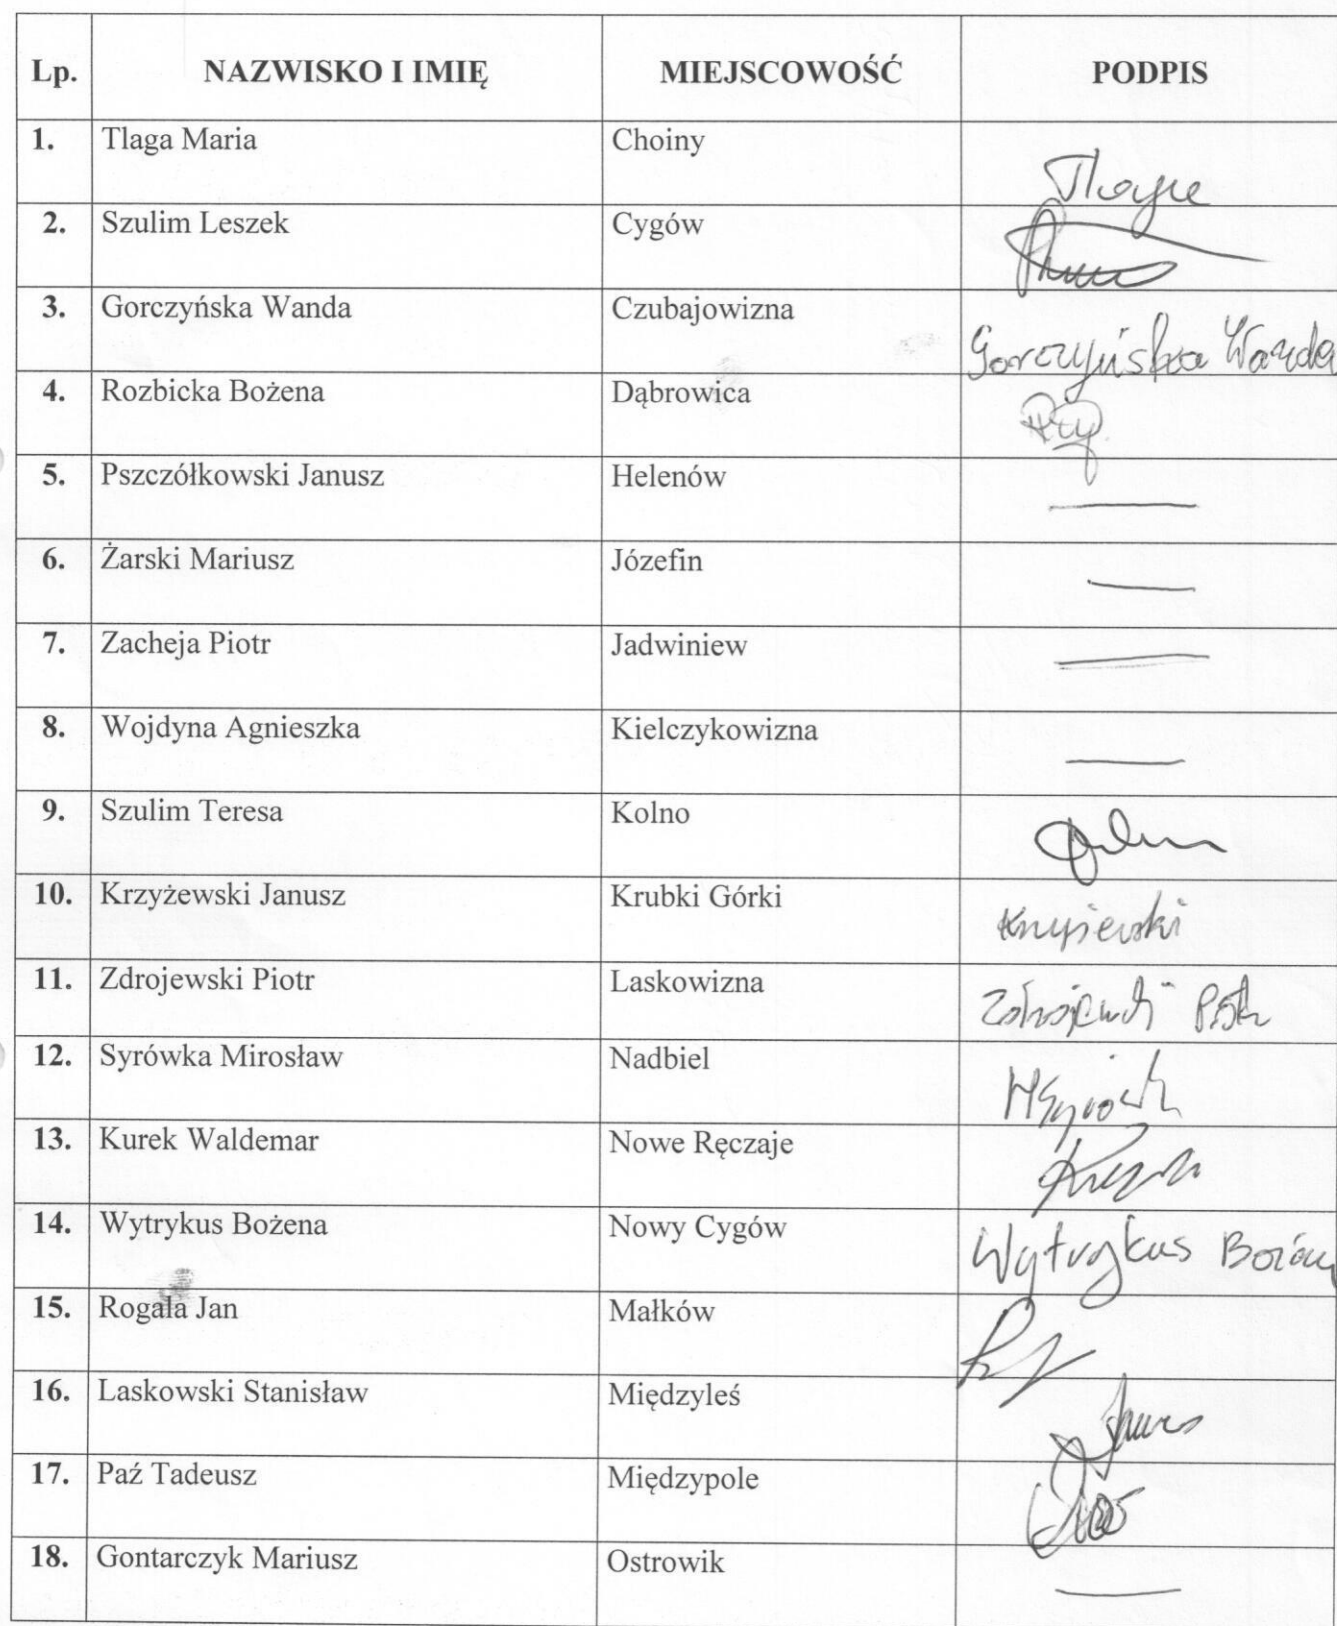 Lp. NAZWISKO I IMIĘ MIEJSCOWOŚĆ PODPIS
1. Tlaga Maria Choiny
2. Szulim Leszek Cygów
3. Gorczyńska Wanda Czubajowizna Gorczyńska Wanda
4. Rozbicka Bożena Dąbrowica
5. Pszczółkowski Janusz Helenów
6. Żarski Mariusz Józefin
7. Zacheja Piotr Jadwiniew
8. Wojdyna Agnieszka Kielczykowizna
9. Szulim Teresa Kolno
10. Krzyżewski Janusz Krubki Górki
11. Zdrojewski Piotr Laskowizna
12. Syrówka Mirosław Nadbiel
13. Kurek Waldemar Nowe Ręczaje
14. Wytrykus Bożena Nowy Cygów Wytrykus
15. Rogala Jan Małków
16. Laskowski Stanisław Międzyleś
17. Paź Tadeusz Międzypole
18. Gontarczyk Mariusz Ostrowik